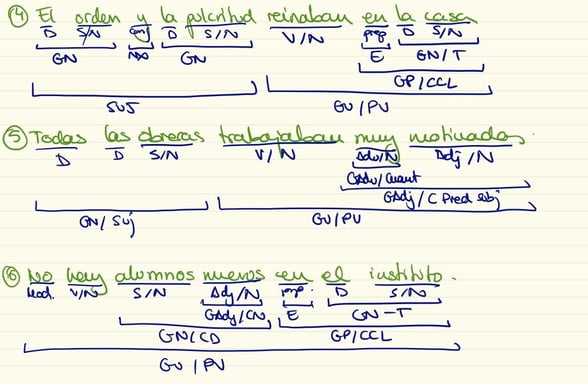 ④ El orden y la pulcritud reinaban en la casa
D S/N Conj D S/N V/N prep D S/N
GN NX GN E GN/T
GP/CCL
SUJ GV/PV
⑤ Todas las obreras trabajaban muy motivadas.
D D S/N V/N Adv/N Adj/N
GAdv/Cuant
GAdj/C Pred Subj
GN/Suj GV/PV
⑥ No hay alumnos nuevos en el instituto.
Mod. V/N S/N Adj/N prep. D S/N
GAdj/CN E GN-T
GN/CD GP/CCL
GV/PV